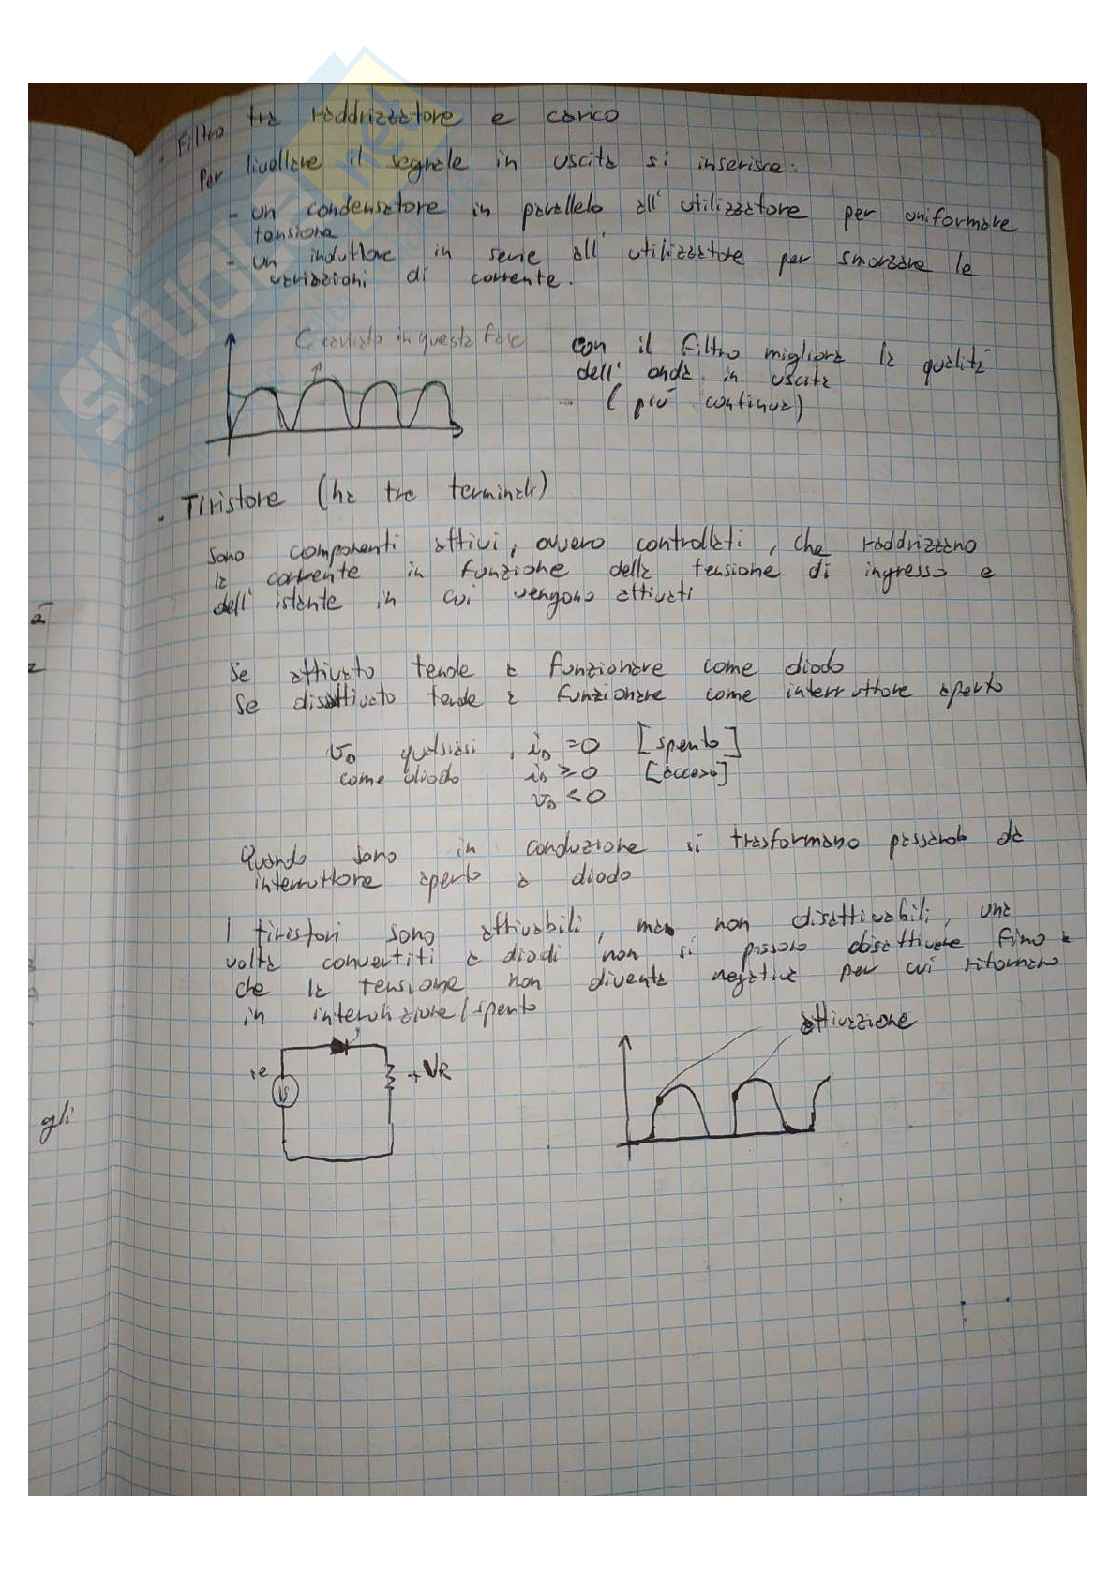 · Filtro tra raddrizzatore e carico
Per livellare il segnale in uscita si inserisce:
- un condensatore in parallelo all' utilizzatore per uniformare
tensione
- un induttore in serie all' utilizzatore per smorzare le
variazioni di corrente.
C caricato in questa fase
con il filtro migliora la qualità
dell' onda in uscita
- ( più continua)
· Tiristore (ha tre terminali)
Sono componenti attivi, ovvero controllati, che raddrizzano
la corrente in funzione della tensione di ingresso e
dell' istante in cui vengono attivati
Se attivato tende a funzionare come diodo
Se disattivato tende a funzionare come interruttore aperto
v_D qualsiasi , i_D = 0 [spento]
come diodo i_D ≥ 0 [acceso]
v_D < 0
Quando sono in conduzione si trasformano passando da
interruttore aperto a diodo
I tiristori sono attivabili, ma non disattivabili, una
volta convertiti a diodi non si possono disattivare fino a
che la tensione non diventa negativa per cui ritornano
in interdizione/spento
attivazione
+ VR
VS
gli